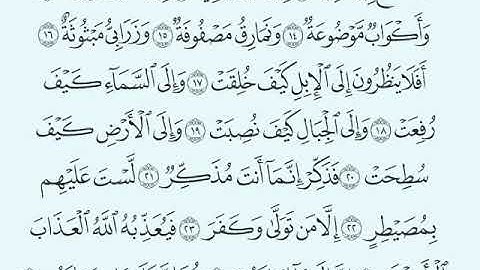 وَأَكْوَابٌ مَّوْضُوعَةٌ ١٤ وَنَمَارِقُ مَصْفُوفَةٌ ١٥ وَزَرَابِيُّ مَبْثُوثَةٌ ١٦
أَفَلَا يَنظُرُونَ إِلَى ٱلْإِبِلِ كَيْفَ خُلِقَتْ ١٧ وَإِلَى ٱلسَّمَآءِ كَيْفَ
رُفِعَتْ ١٨ وَإِلَى ٱلْجِبَالِ كَيْفَ نُصِبَتْ ١٩ وَإِلَى ٱلْأَرْضِ كَيْفَ
سُطِحَتْ ٢٠ فَذَكِّرْ إِنَّمَآ أَنتَ مُذَكِّرٌ ٢١ لَّسْتَ عَلَيْهِم
بِمُصَيْطِرٍ ٢٢ إِلَّا مَن تَوَلَّىٰ وَكَفَرَ ٢٣ فَيُعَذِّبُهُ ٱللَّهُ ٱلْعَذَابَ